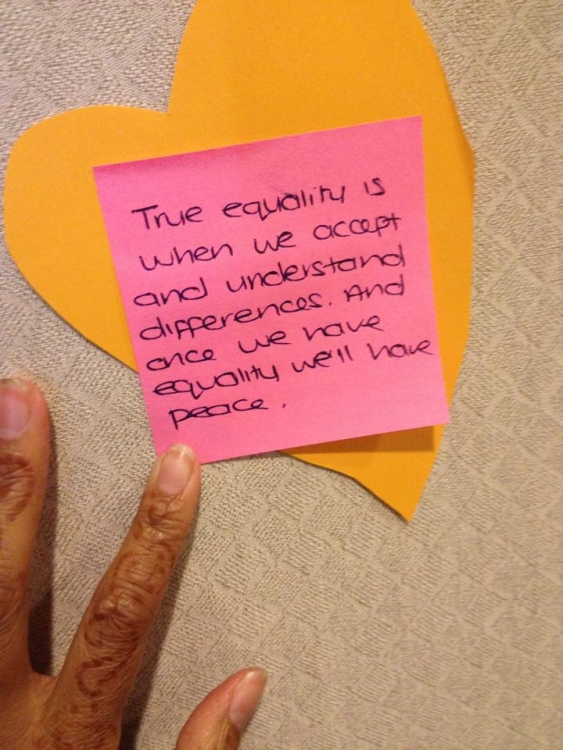 True equality is
when we accept
and understand
differences. And
once we have
equality we'll have
peace.